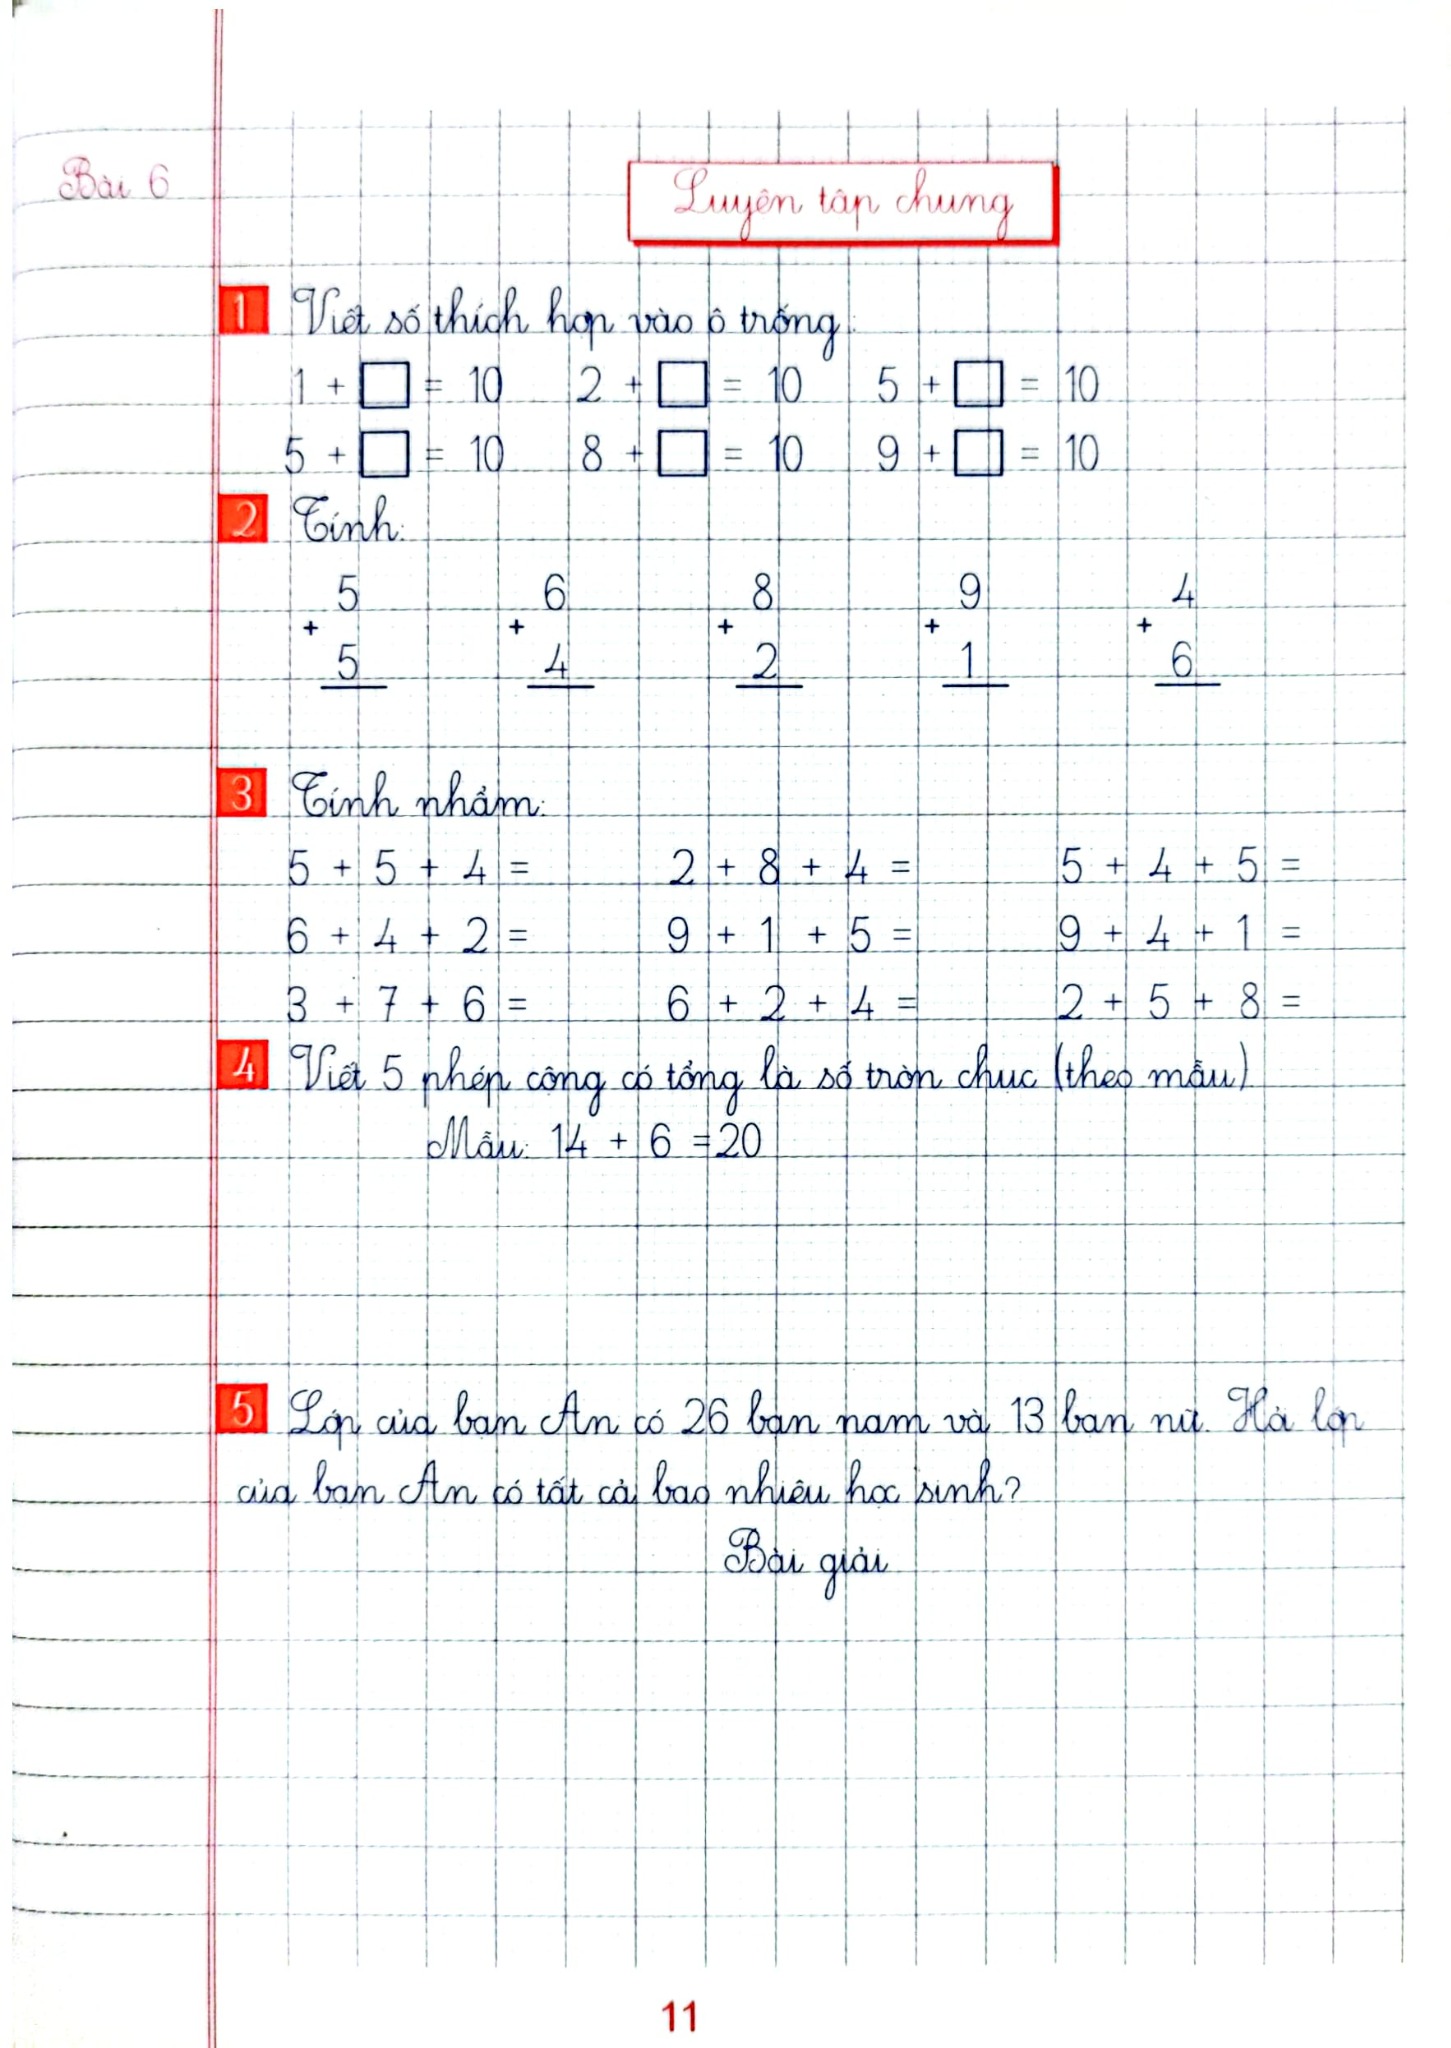 Bài 6
Luyện tập chung
1 Viết số thích hợp vào ô trống:
1 + □ = 10 2 + □ = 10 5 + □ = 10
5 + □ = 10 8 + □ = 10 9 + □ = 10
2 Tính:
5 6 8 9 4
+ + + + +
5 4 2 1 6
3 Tính nhẩm:
5 + 5 + 4 = 2 + 8 + 4 = 5 + 4 + 5 =
6 + 4 + 2 = 9 + 1 + 5 = 9 + 4 + 1 =
3 + 7 + 6 = 6 + 2 + 4 = 2 + 5 + 8 =
4 Viết 5 phép cộng có tổng là số tròn chục (theo mẫu)
Mẫu: 14 + 6 = 20
5 Lớp của bạn An có 26 bạn nam và 13 bạn nữ. Hỏi lớp
của bạn An có tất cả bao nhiêu học sinh?
Bài giải
11